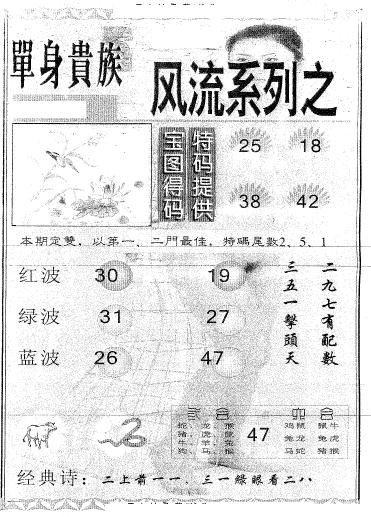 單身貴族
风流系列之
宝图得码
特码提供
25 18
38 42
本期定雙，以第一、二門最佳，特碼尾數2、5、1
红波 30 19
绿波 31 27
蓝波 26 47
二九七有配數
三五一擊頭天
47
六合
鸡鼠 鼠牛
兔龙 兔虎
马蛇 猪猴
经典诗：二上前一一、三一綠眼看二八